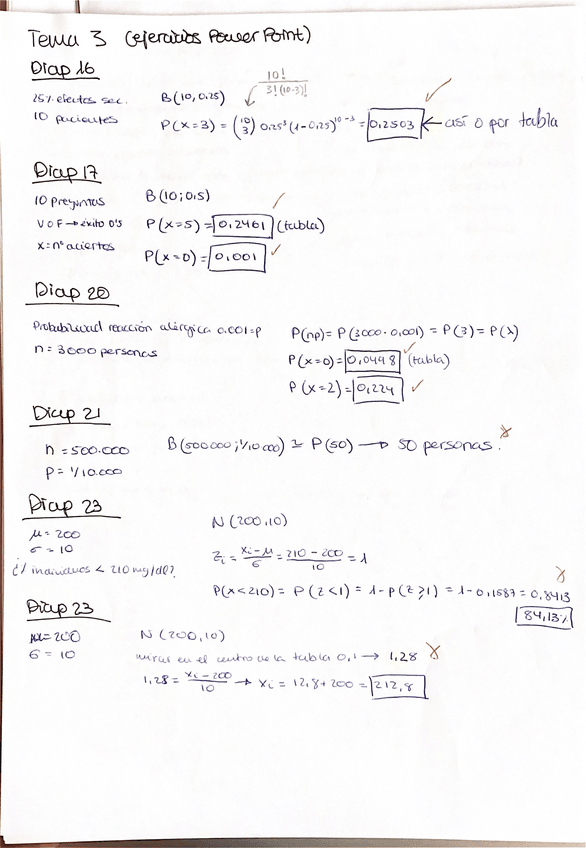 Tema 3 (ejercicios Power Point)
Diap 16
25% efectos sec.
10 pacientes
B(10, 0.25)
10! / 3!(10-3)!
P(x=3) = (10 3) 0.25³ (1-0.25)¹⁰⁻³ = 0,2503 ← así o por tabla
Diap 17
10 preguntas
V O F → éxito 0'5
x = nº aciertos
B(10; 0,5)
P(x=5) = 0,2461 (tabla)
P(x=0) = 0,001
Diap 20
Probabilidad reacción alérgica 0.001=p
n = 3000 personas
P(np) = P(3000·0,001) = P(3) = P(λ)
P(x=0) = 0,0498 (tabla)
P(x=2) = 0,224
Diap 21
n = 500.000
p = 1/10.000
B(500000; 1/10000) ≃ P(50) → 50 personas.
Diap 23
μ = 200
σ = 10
¿% individuos < 210 mg/dl?
N(200,10)
Zi = xi-μ / σ = 210-200 / 10 = 1
P(x<210) = P(Z<1) = 1-P(Z⩾1) = 1-0,1587 = 0,8413
84,13%
Diap 23
μ=200
σ = 10
N(200,10)
mirar en el centro de la tabla 0,1 → 1,28
1,28 = xi-200 / 10 → xi = 12,8+200 = 212,8